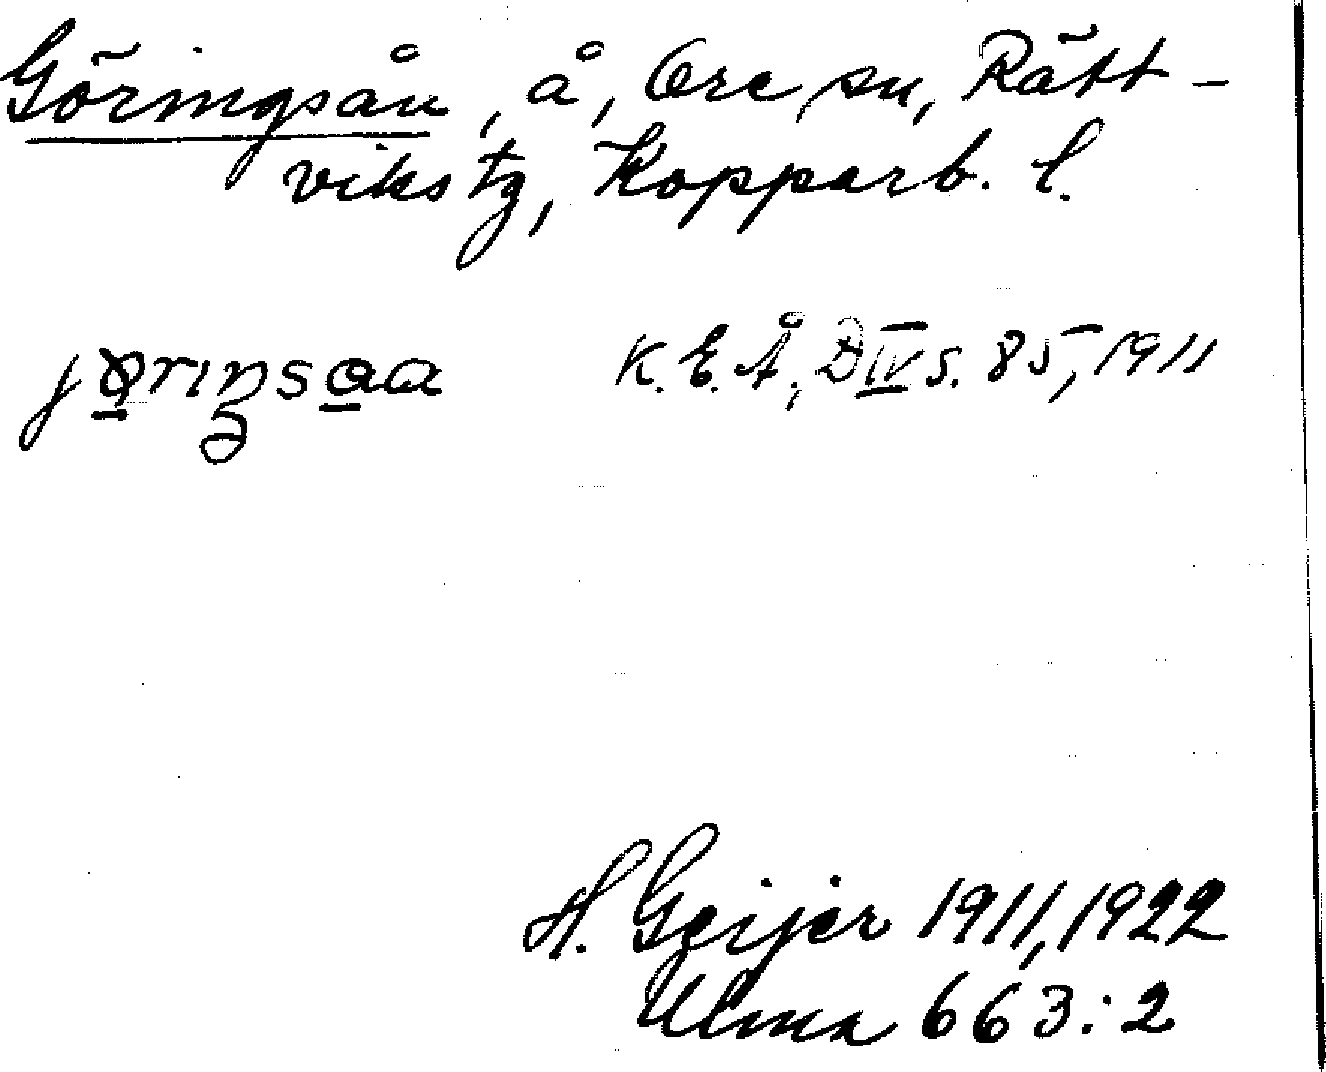 Göringsån, å, Ore sn, Rätt-
viks tg, Kopparb. l.
K. E. Å, D IV s. 85, 1911
H. Geijer 1911, 1922
Ulma 663:2